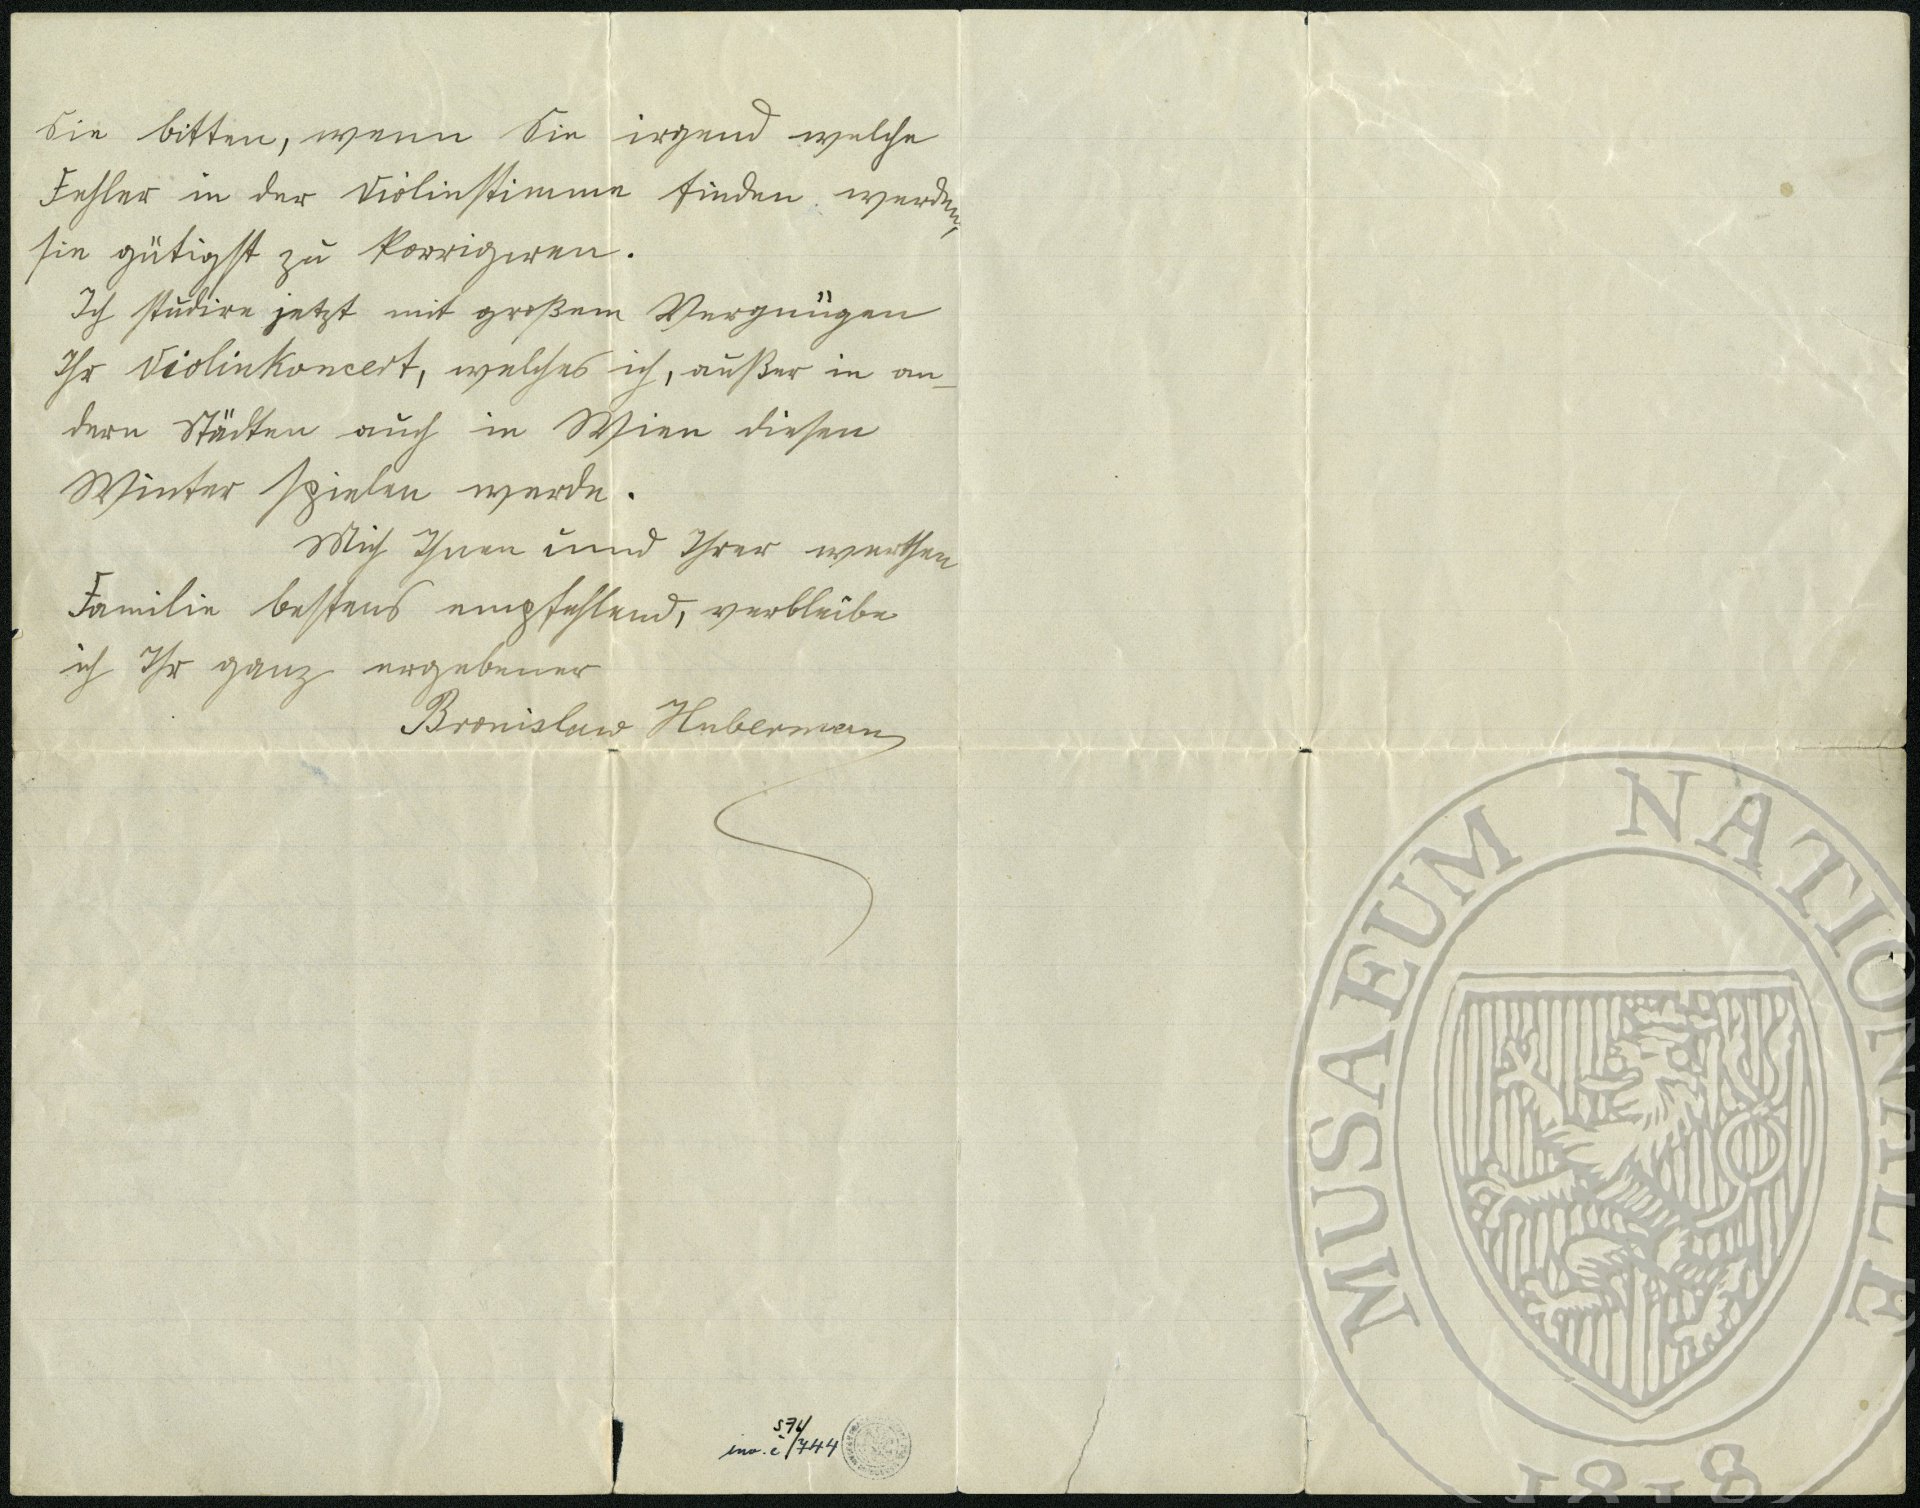 Sie bitten, wenn Sie irgend welche
Fehler in der Violinstimme finden werden,
sie gütigst zu korrigiren.
Ich studire jetzt mit großem Vergnügen
Ihr Violinkoncert, welches ich, außer in an-
dern Städten auch in Wien diesen
Winter spielen werde.
Mich Ihnen und Ihrer werthen
Familie bestens empfehlend, verbleibe
ich Ihr ganz ergebener
Bronislaw Huberman
inv. č /744
MUSAEUM NATIONALE
1818